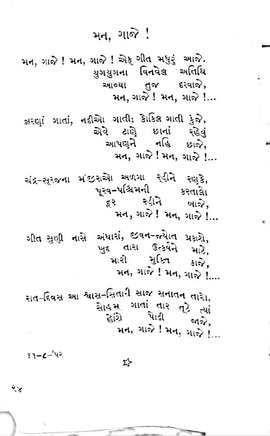 મન, ગાજે !
મન, ગાજે ! મન, ગાજે ! એક ગીત મધુરું આજે.
યુગયુગના વિનવેલ અતિથિ
આવ્યા તુજ દરવાજે,
મન, ગાજે ! મન, ગાજે !...
ઝરણાં ગાતાં, નદીઓ ગાતી; કોકિલ ગાતી કુંજે,
એવે ટાણે છાનાં રહેવું
આપણને નહિ છાજે,
મન, ગાજે ! મન, ગાજે !...
ચંદ્ર-સૂરજના મંજીરાઓ અળગા રહીને રણકે,
પૂરવ-પશ્ચિમની કરતાલો
દૂર રહીને બાજે,
મન, ગાજે ! મન, ગાજે !...
ગીત સુણી નાસે અંધારાં, જીવન-જ્યોત પ્રકાશે,
ખુદ તારા ઉત્કર્ષને માટે,
મારી મુક્તિ કાજે,
મન, ગાજે ! મન, ગાજે !...
રાત-દિવસ આ શ્વાસ-સિતારી સાજ સનાતન તારો,
સોહમ ગાતાં તાર તૂટે ત્યાં
હંસો પોઢી જાજે,
મન, ગાજે ! મન, ગાજે !...
૩૧-૮-'૫૨
૨૪